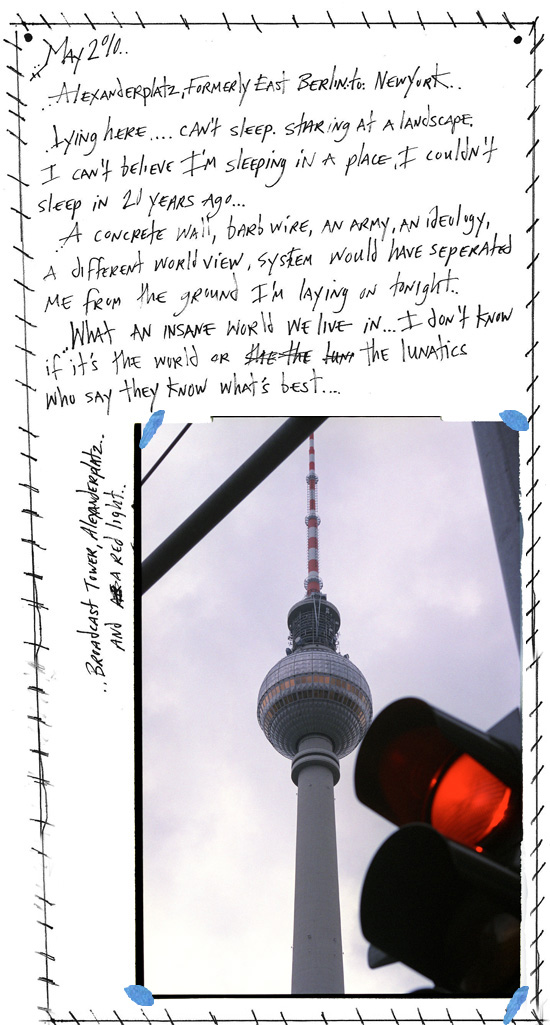 ..May 2010..
..Alexanderplatz, Formerly East Berlin.to. New York..
..Lying here.... can't sleep. staring at a landscape.
I can't believe I'm sleeping in a place, I couldn't
sleep in 20 years ago...
..A concrete wall, barb wire, an army, an ideology,
a different world view, system would have seperated
me from the ground I'm laying on tonight..
..What an insane world we live in... I don't know
if it's the world or the lunatics
who say they know what's best....
..Broadcast Tower, Alexanderplatz..
and a red light..